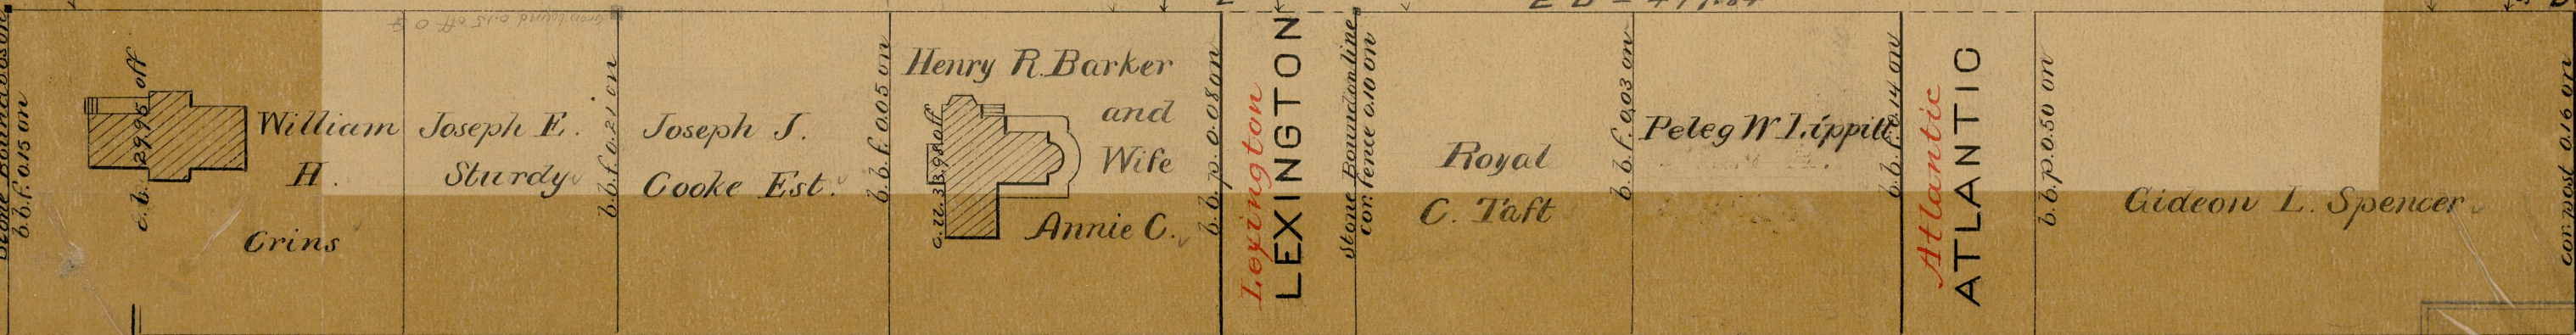 b.b.f. 0.15 on
c.b. 29.95 off
William
H.
Grins
Joseph E.
Sturdy
b.b.f. 0.21 on
Joseph J.
Cooke Est.
b.b.f. 0.05 on
Henry R. Barker
and
Wife
Annie C.
c.u. 33.98 off
b.b.p. 0.08 on
Lexington
LEXINGTON
Stone Bound on line
cor. fence 0.10 on
Royal
C. Taft
b.b.f. 0.03 on
Peleg W Lippitt
b.b.f. 0.14 on
Atlantic
ATLANTIC
b.b.p. 0.50 on
Gideon L. Spencer
cor. west 0.16 on